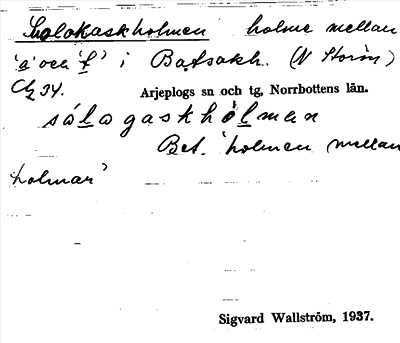 Sulokaskholmen holme mellan
'a' och 'f' i Båtsakh. (N Storön)
34. Arjeplogs sn och tg, Norrbottens län.
sólogaskhólmen
Bet. 'holmen mellan
holmar'
Sigvard Wallström, 1937.